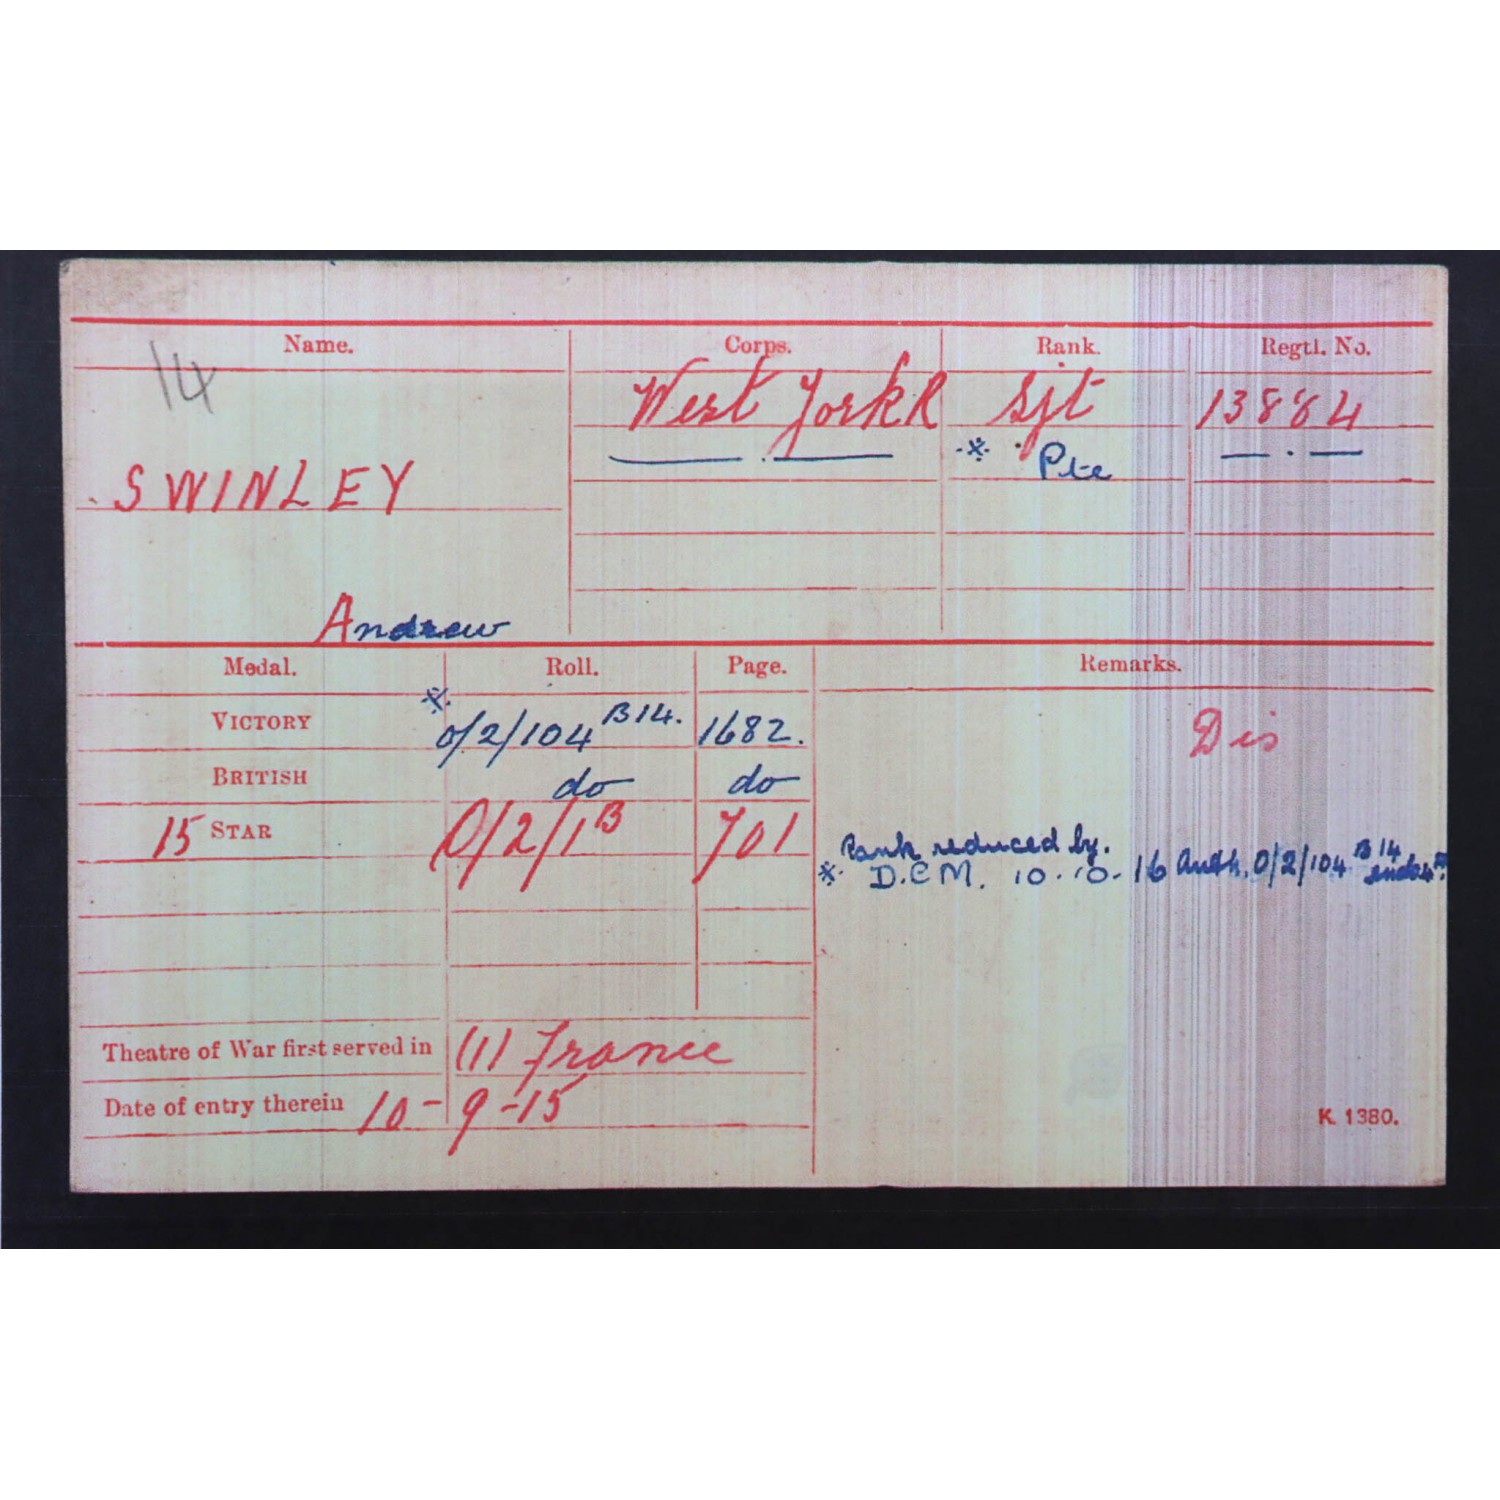 Name. Corps. Rank. Regtl. No.
14
West York R Sjt 13884
※ Pte
SWINLEY
Andrew
Medal. Roll. Page. Remarks.
※
VICTORY O/2/104 B14. 1682. Dis
BRITISH do do
15 STAR O/2/1B 701
Rank reduced by.
※ D.C.M. 10.10.16 Auth. O/2/104 B14
Theatre of War first served in (1) France
Date of entry therein 10-9-15
K. 1380.